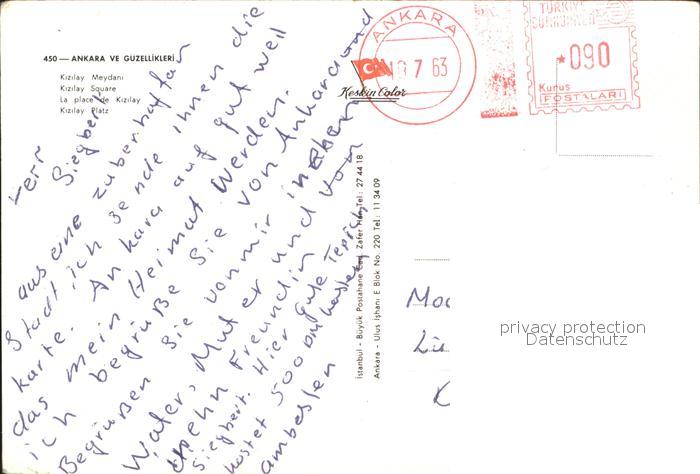 450 — ANKARA VE GUZELLİKLERİ
Kızılay Meydanı
Kızılay Square
La place de Kızılay
Kızılay Platz
ANKARA
10 7 63
Keskin Color
TÜRKİYE
CUMHURİYETİ
*090
Kuruş
POSTALARI
Herr Siegbert
aus eine zuberhaftan
Stadt ich sende ihnen die
karte. Ankara auf gut weil
das mein Heimat Werden.
ich begrüße Sie von Ankara und
Begrüßen Sie von mir ihrer
Vater, Muter und vom
Freundin
Siegbert. Hier gute Tepich
kostet 500 DM
ambesten
İstanbul - Büyük Postahane Cad. Zafer Han Tel: 27 44 18
Ankara - Ulus İşhanı E Blok No. 220 Tel: 11 34 09
privacy protection
Datenschutz